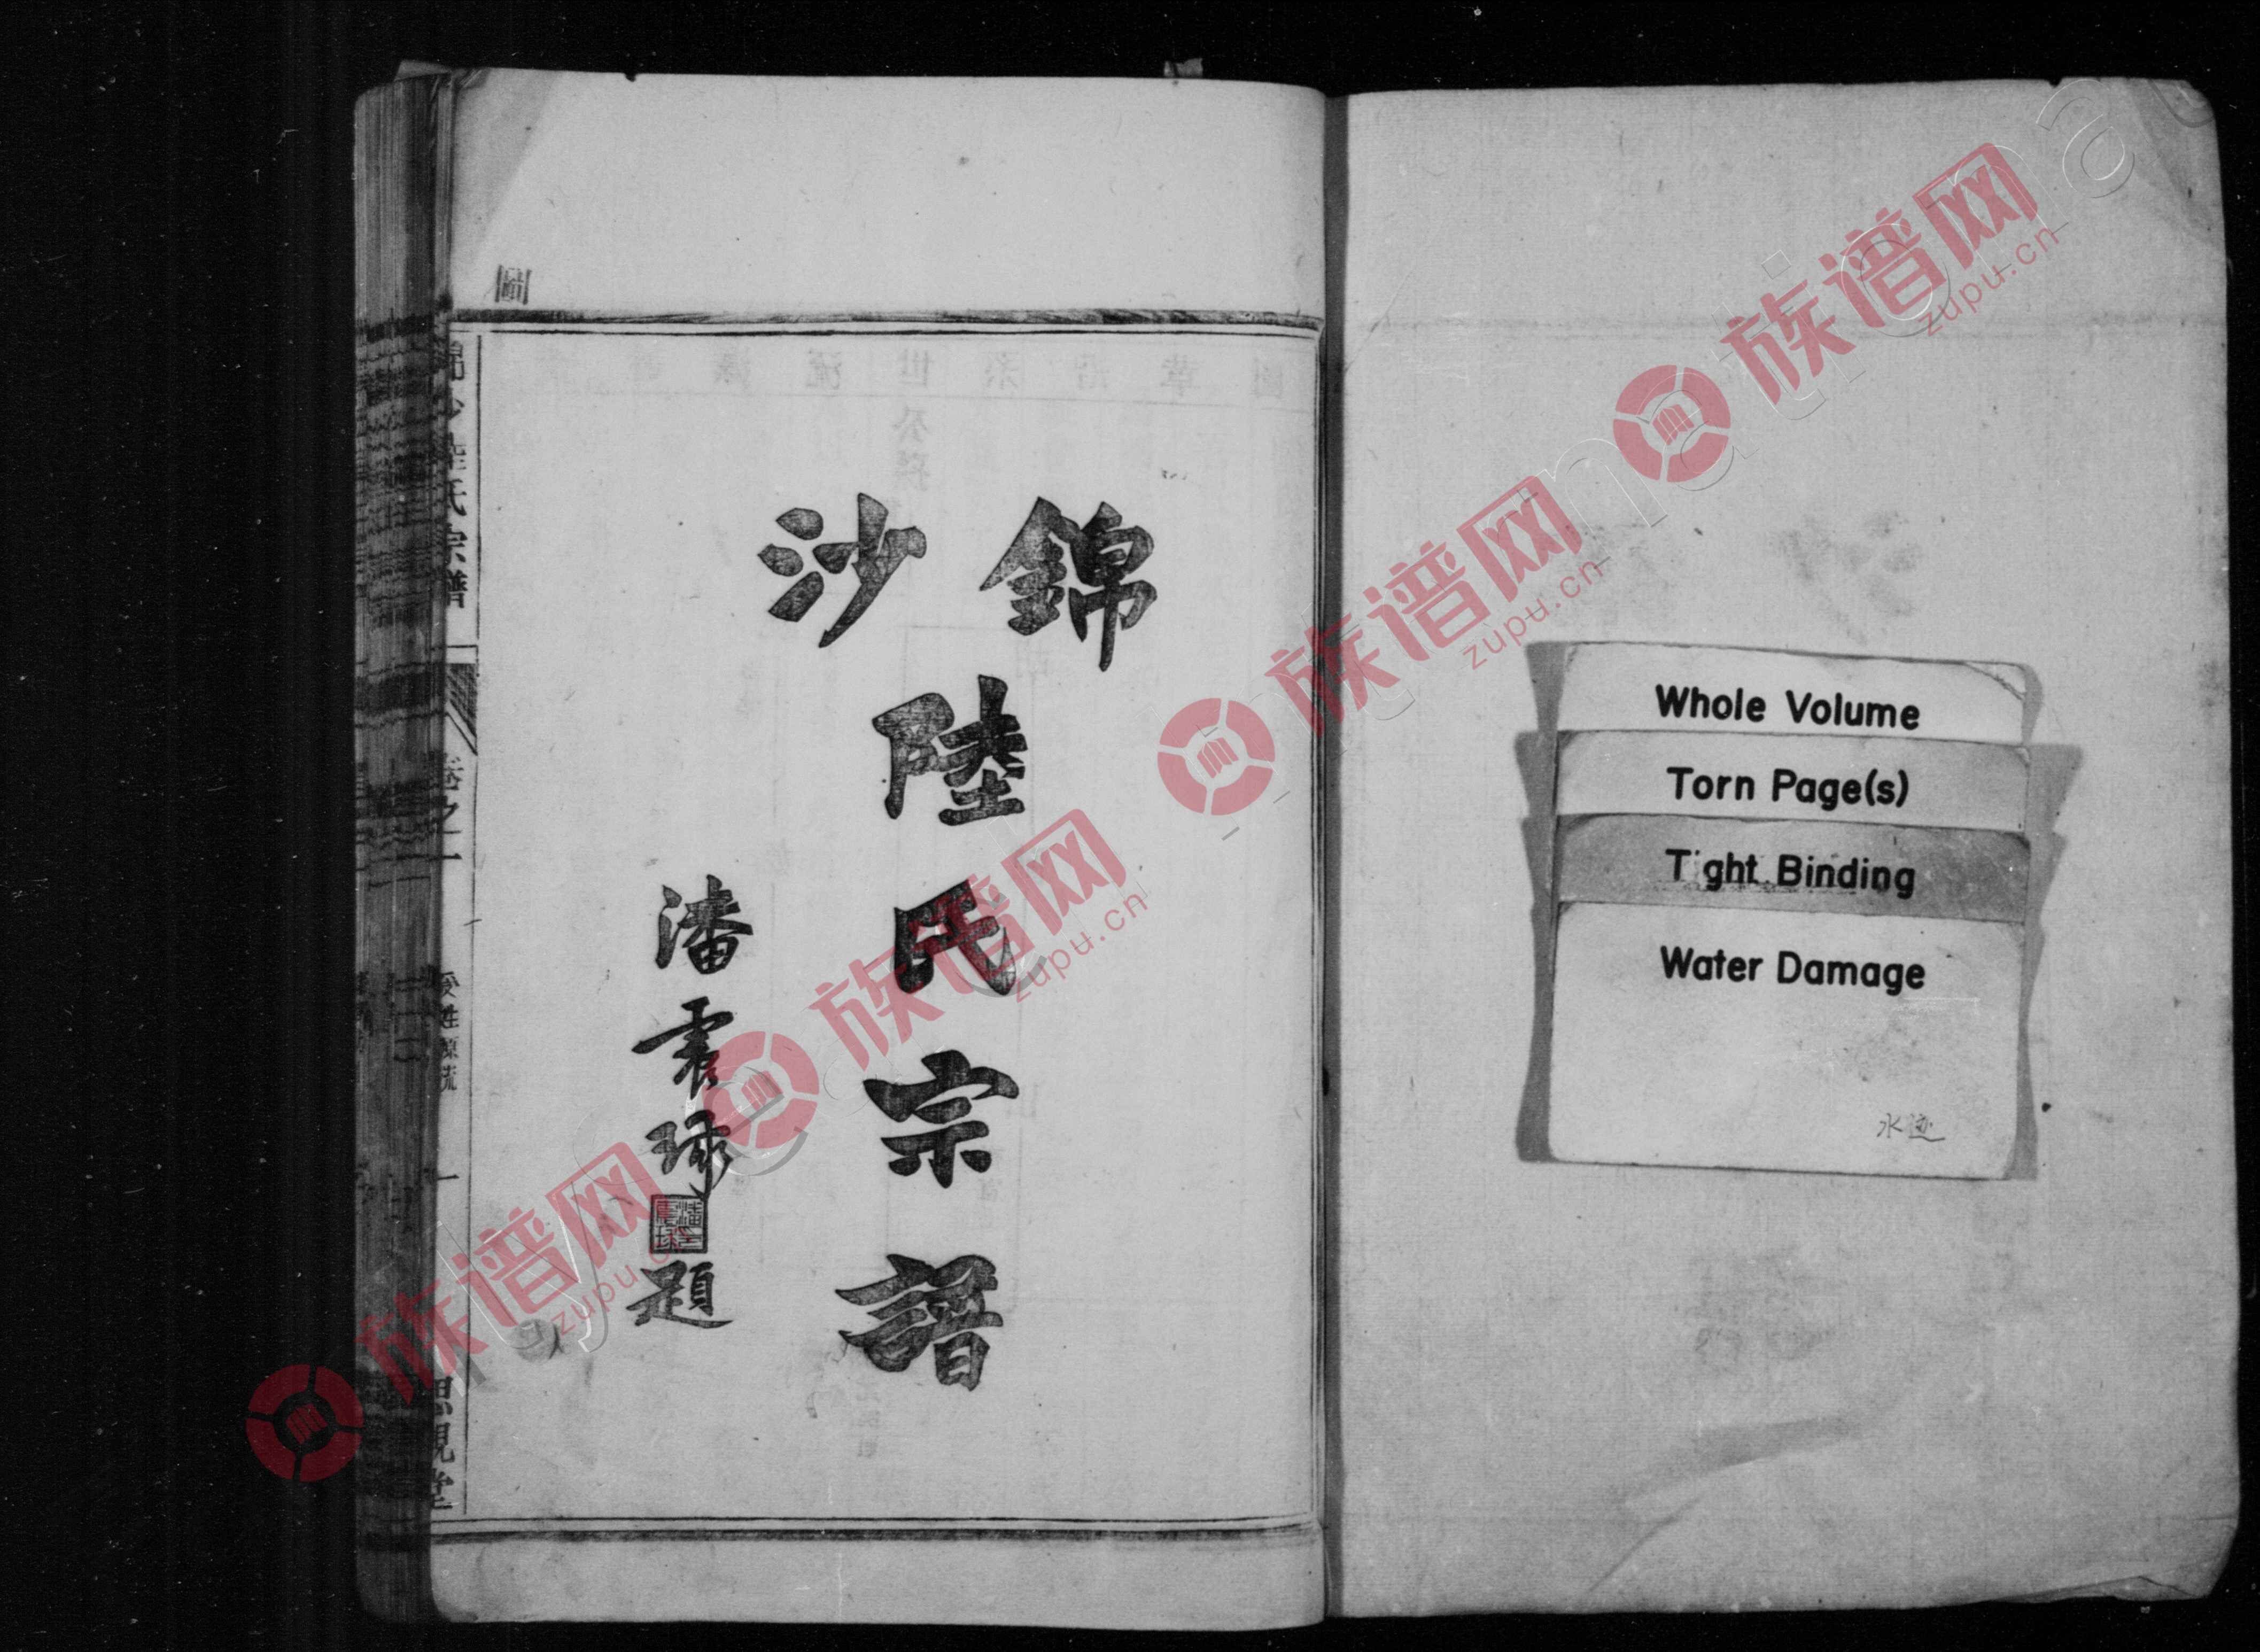 Whole Volume
Torn Page(s)
Tight Binding
Water Damage
水迹
錦沙
陸氏宗譜
潘霱球
題
圖
錦沙陸氏宗譜
卷之一
受姓源流
一
思親堂
族谱网
zupu.cn
族谱网
zupu.cn
族谱网
zupu.cn
族谱网
zupu.cn